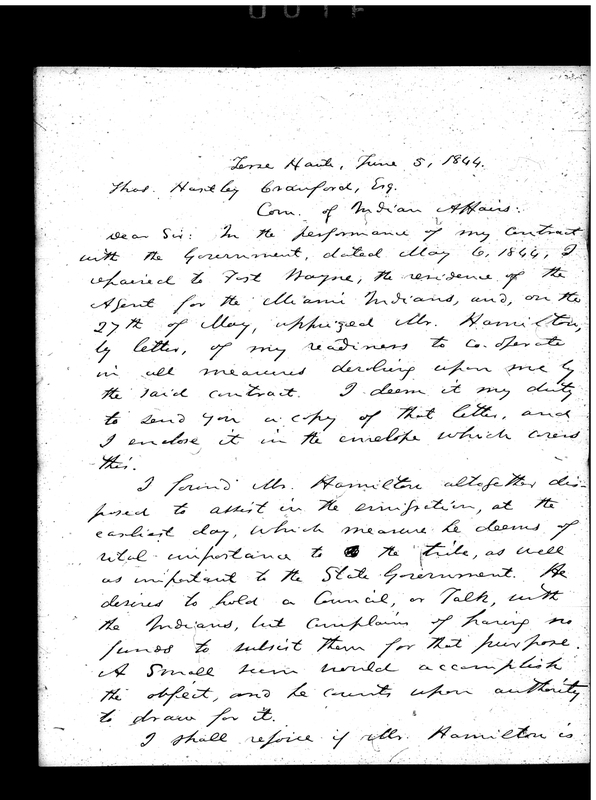 Terre Haute, June 5, 1844.
Thos. Hartley Crawford, Esq.
Com. of Indian Affairs.
Dear Sir: In the performance of my contract
with the Government, dated May 6, 1844, I
repaired to Fort Wayne, the residence of the
Agent for the Miami Indians, and, on the
27th of May, apprized Mr. Hamilton,
by letter, of my readiness to co-operate
in all measures devolving upon me by
the said contract. I deem it my duty
to send you a copy of that letter, and
I enclose it in the envelope which covers
this.
I found Mr. Hamilton altogether dis-
posed to assist in the emigration, at the
earliest day, which measure he deems of
vital importance to the tribe, as well
as important to the State Government. He
desires to hold a Council, or Talk, with
the Indians, but complains of having no
funds to subsist them for that purpose.
A small sum would accomplish
the object, and he counts upon authority
to draw for it.
I shall rejoice if Mr. Hamilton is